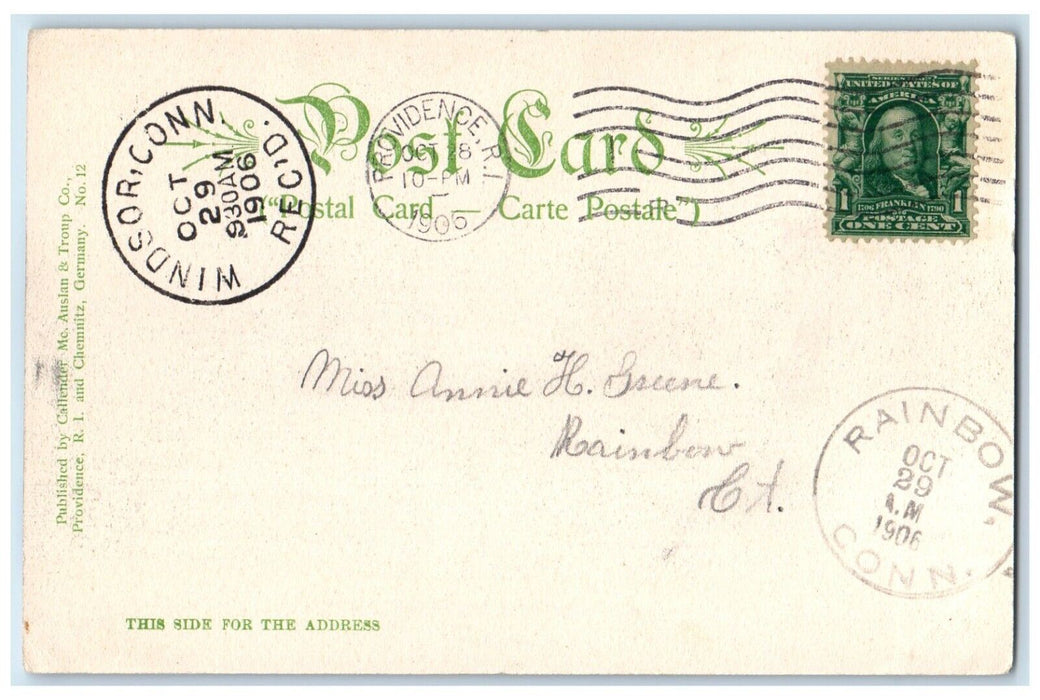 Post Card
("Postal Card — Carte Postale")
WINDSOR, CONN. REC'D.
OCT
29
930AM
1906
PROVIDENCE, R.I.
OCT 28
10-PM
1906
SERIES 1902
UNITED STATES OF
AMERICA
1 1706 FRANKLIN 1790 1
POSTAGE
ONE CENT
Published by Callender Mc. Auslan & Troup Co.,
Providence, R. I. and Chemnitz, Germany. No. 12
Miss Annie H. Greene.
Rainbow
Ct.
RAINBOW, CONN.
OCT
29
A.M
1906
THIS SIDE FOR THE ADDRESS